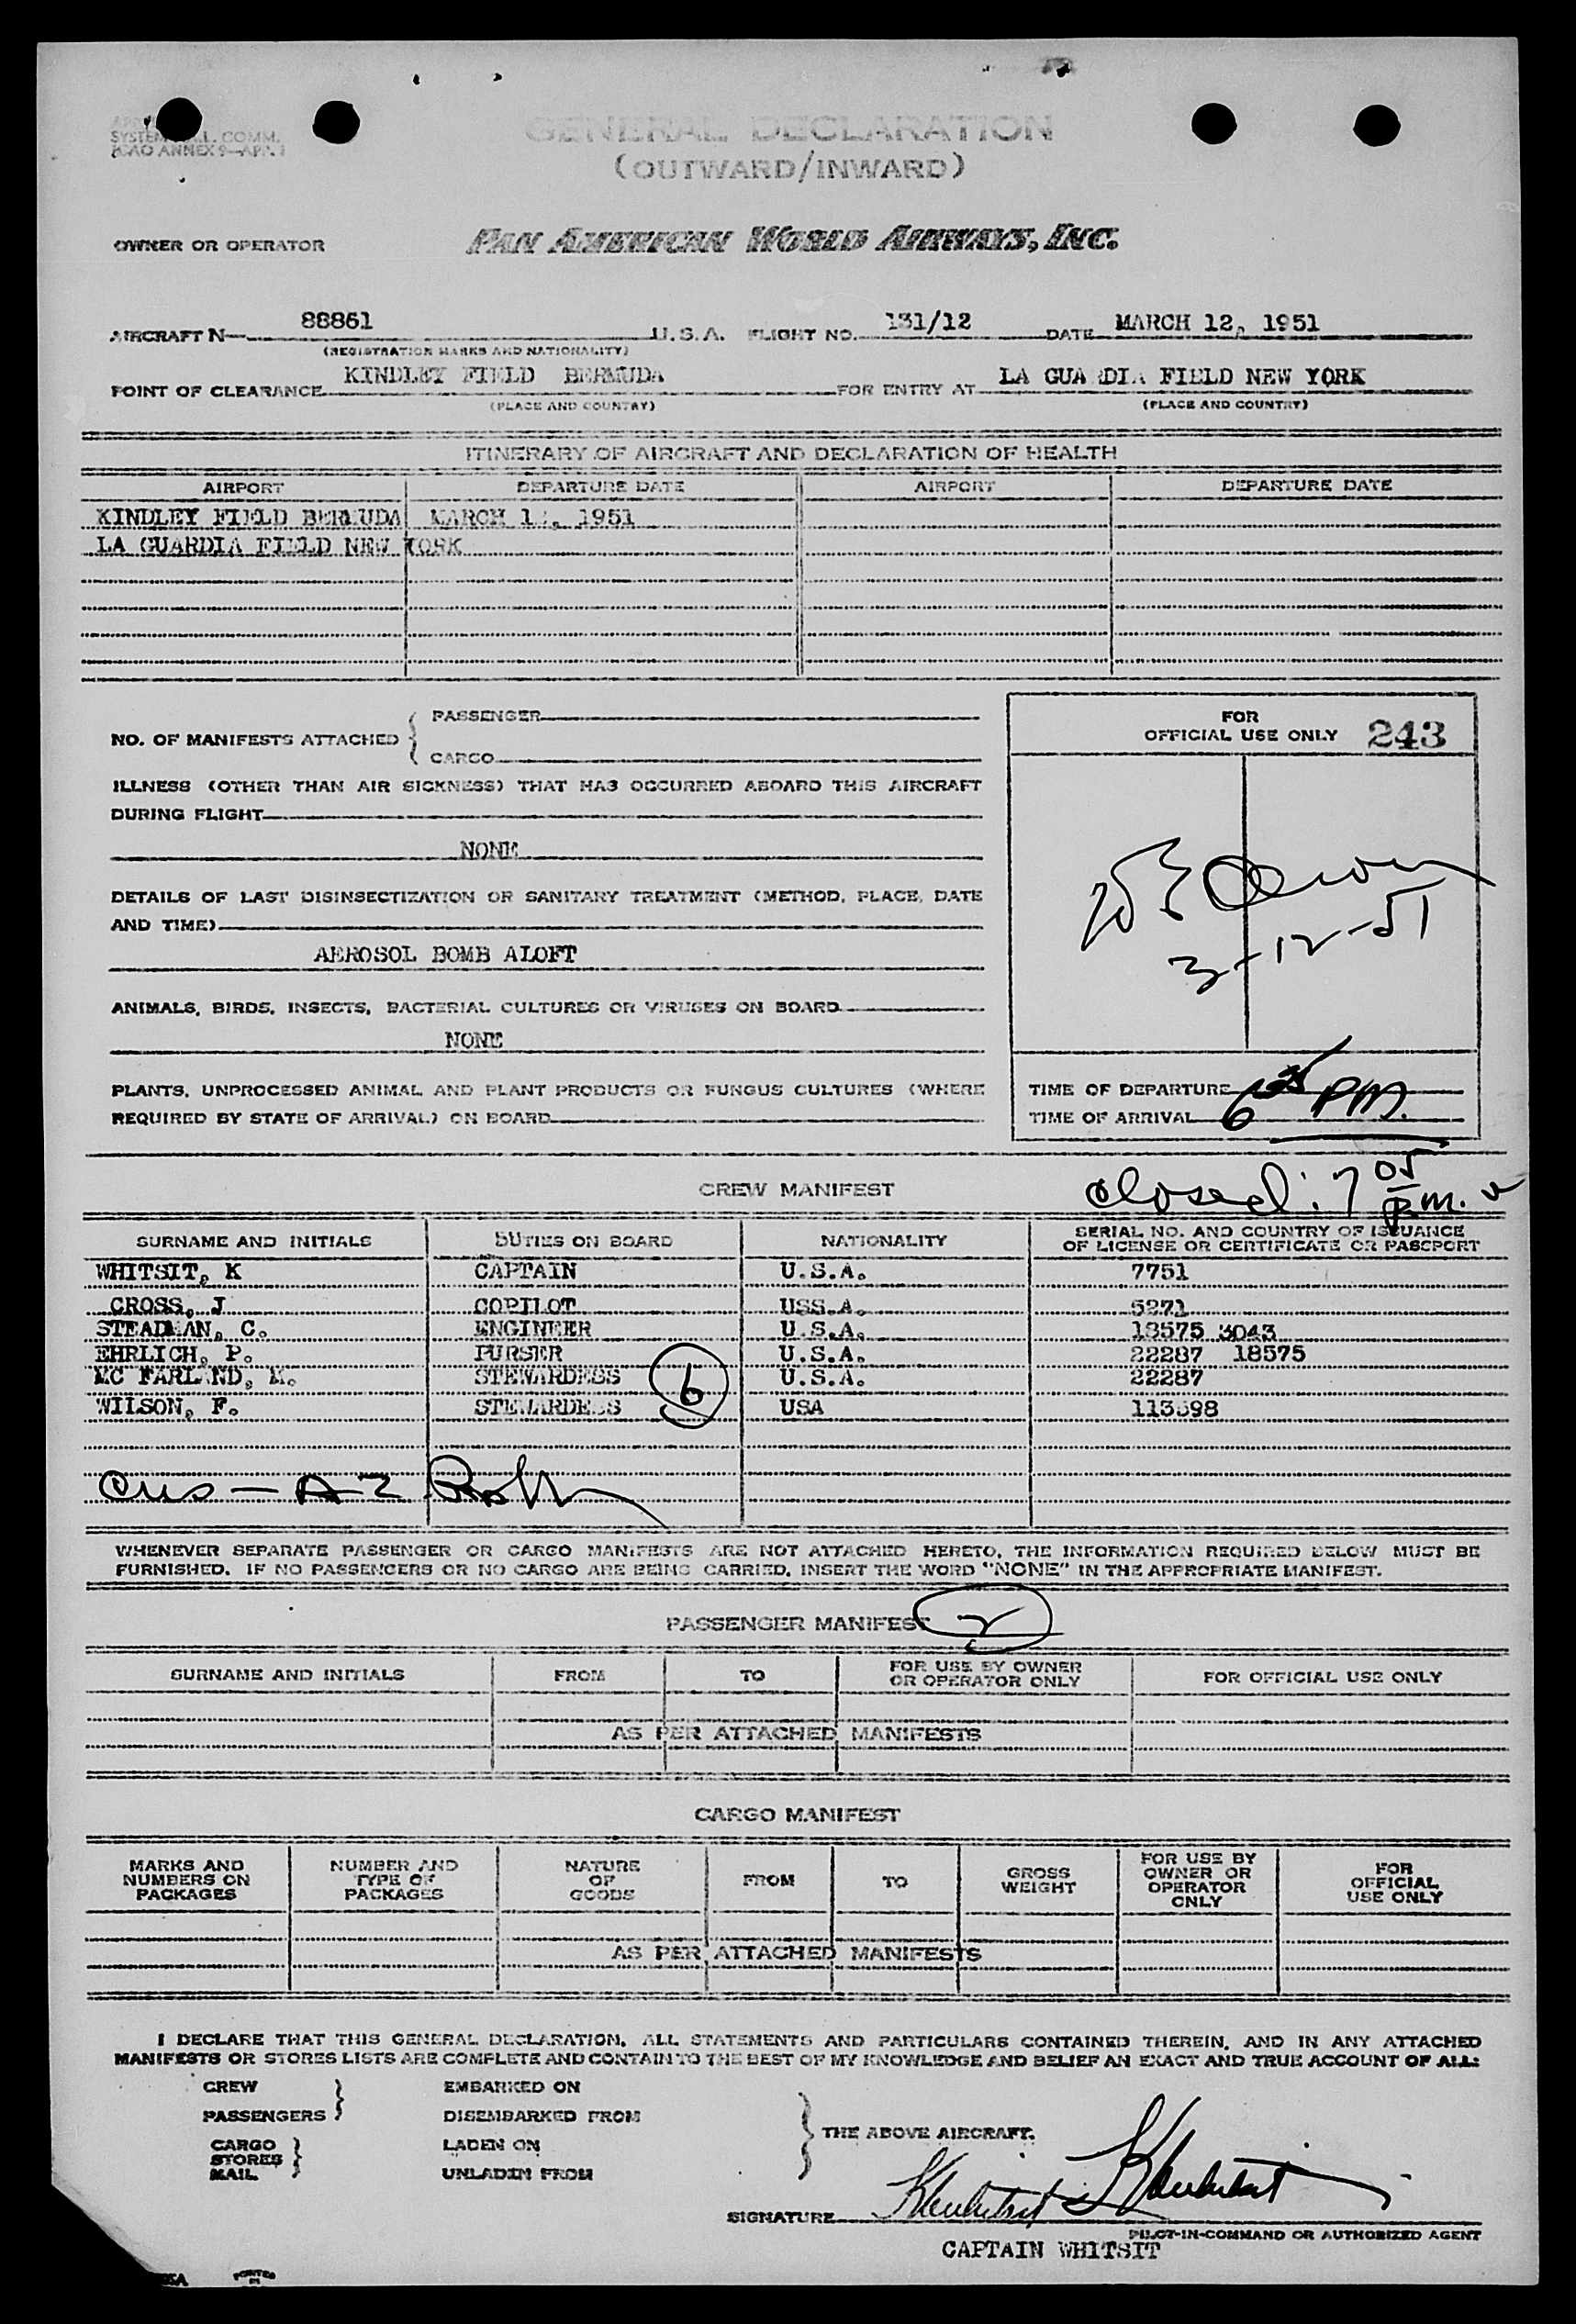 SYSTEM COMM.
ICAO ANNEX 9—APP. 1
GENERAL DECLARATION
(OUTWARD/INWARD)
OWNER OR OPERATOR PAN AMERICAN WORLD AIRWAYS, INC.
AIRCRAFT N— 88861 U.S.A. FLIGHT NO. 131/12 DATE MARCH 12, 1951
(REGISTRATION MARKS AND NATIONALITY)
POINT OF CLEARANCE KINDLEY FIELD BERMUDA FOR ENTRY AT LA GUARDIA FIELD NEW YORK
(PLACE AND COUNTRY) (PLACE AND COUNTRY)
ITINERARY OF AIRCRAFT AND DECLARATION OF HEALTH
AIRPORT DEPARTURE DATE AIRPORT DEPARTURE DATE
KINDLEY FIELD BERMUDA MARCH 12, 1951
LA GUARDIA FIELD NEW YORK
NO. OF MANIFESTS ATTACHED { PASSENGER
CARGO
ILLNESS (OTHER THAN AIR SICKNESS) THAT HAS OCCURRED ABOARD THIS AIRCRAFT
DURING FLIGHT
NONE
DETAILS OF LAST DISINSECTIZATION OR SANITARY TREATMENT (METHOD, PLACE, DATE
AND TIME)
AEROSOL BOMB ALOFT
ANIMALS, BIRDS, INSECTS, BACTERIAL CULTURES OR VIRUSES ON BOARD
NONE
PLANTS, UNPROCESSED ANIMAL AND PLANT PRODUCTS OR FUNGUS CULTURES (WHERE
REQUIRED BY STATE OF ARRIVAL) ON BOARD
FOR
OFFICIAL USE ONLY 243
3-12-51
TIME OF DEPARTURE
TIME OF ARRIVAL 6 25 PM.
closed: 7 05 p.m.
CREW MANIFEST
SURNAME AND INITIALS DUTIES ON BOARD NATIONALITY SERIAL NO. AND COUNTRY OF ISSUANCE
OF LICENSE OR CERTIFICATE OR PASSPORT
WHITSIT, K CAPTAIN U.S.A. 7751
CROSS, J COPILOT USS.A. 5271
STEADMAN, C. ENGINEER U.S.A. 18575 3043
EHRLICH, P. PURSER U.S.A. 22287 18575
MC FARLAND, M. STEWARDESS U.S.A. 22287
6
WILSON, F. STEWARDESS USA 113698
Cus - A2
WHENEVER SEPARATE PASSENGER OR CARGO MANIFESTS ARE NOT ATTACHED HERETO, THE INFORMATION REQUIRED BELOW MUST BE
FURNISHED. IF NO PASSENGERS OR NO CARGO ARE BEING CARRIED, INSERT THE WORD "NONE" IN THE APPROPRIATE MANIFEST.
PASSENGER MANIFEST 2
SURNAME AND INITIALS FROM TO FOR USE BY OWNER
OR OPERATOR ONLY FOR OFFICIAL USE ONLY
AS PER ATTACHED MANIFESTS
CARGO MANIFEST
MARKS AND
NUMBERS ON
PACKAGES
NUMBER AND
TYPE OF
PACKAGES
NATURE
OF
GOODS
FROM
TO
GROSS
WEIGHT
FOR USE BY
OWNER OR
OPERATOR
ONLY
FOR
OFFICIAL
USE ONLY
AS PER ATTACHED MANIFESTS
I DECLARE THAT THIS GENERAL DECLARATION, ALL STATEMENTS AND PARTICULARS CONTAINED THEREIN, AND IN ANY ATTACHED
MANIFESTS OR STORES LISTS ARE COMPLETE AND CONTAIN TO THE BEST OF MY KNOWLEDGE AND BELIEF AN EXACT AND TRUE ACCOUNT OF ALL:
CREW } EMBARKED ON
PASSENGERS DISEMBARKED FROM
} THE ABOVE AIRCRAFT.
CARGO LADEN ON
STORES }
MAIL UNLADEN FROM
SIGNATURE KWhitsit KWhitsit
PILOT-IN-COMMAND OR AUTHORIZED AGENT
CAPTAIN WHITSIT